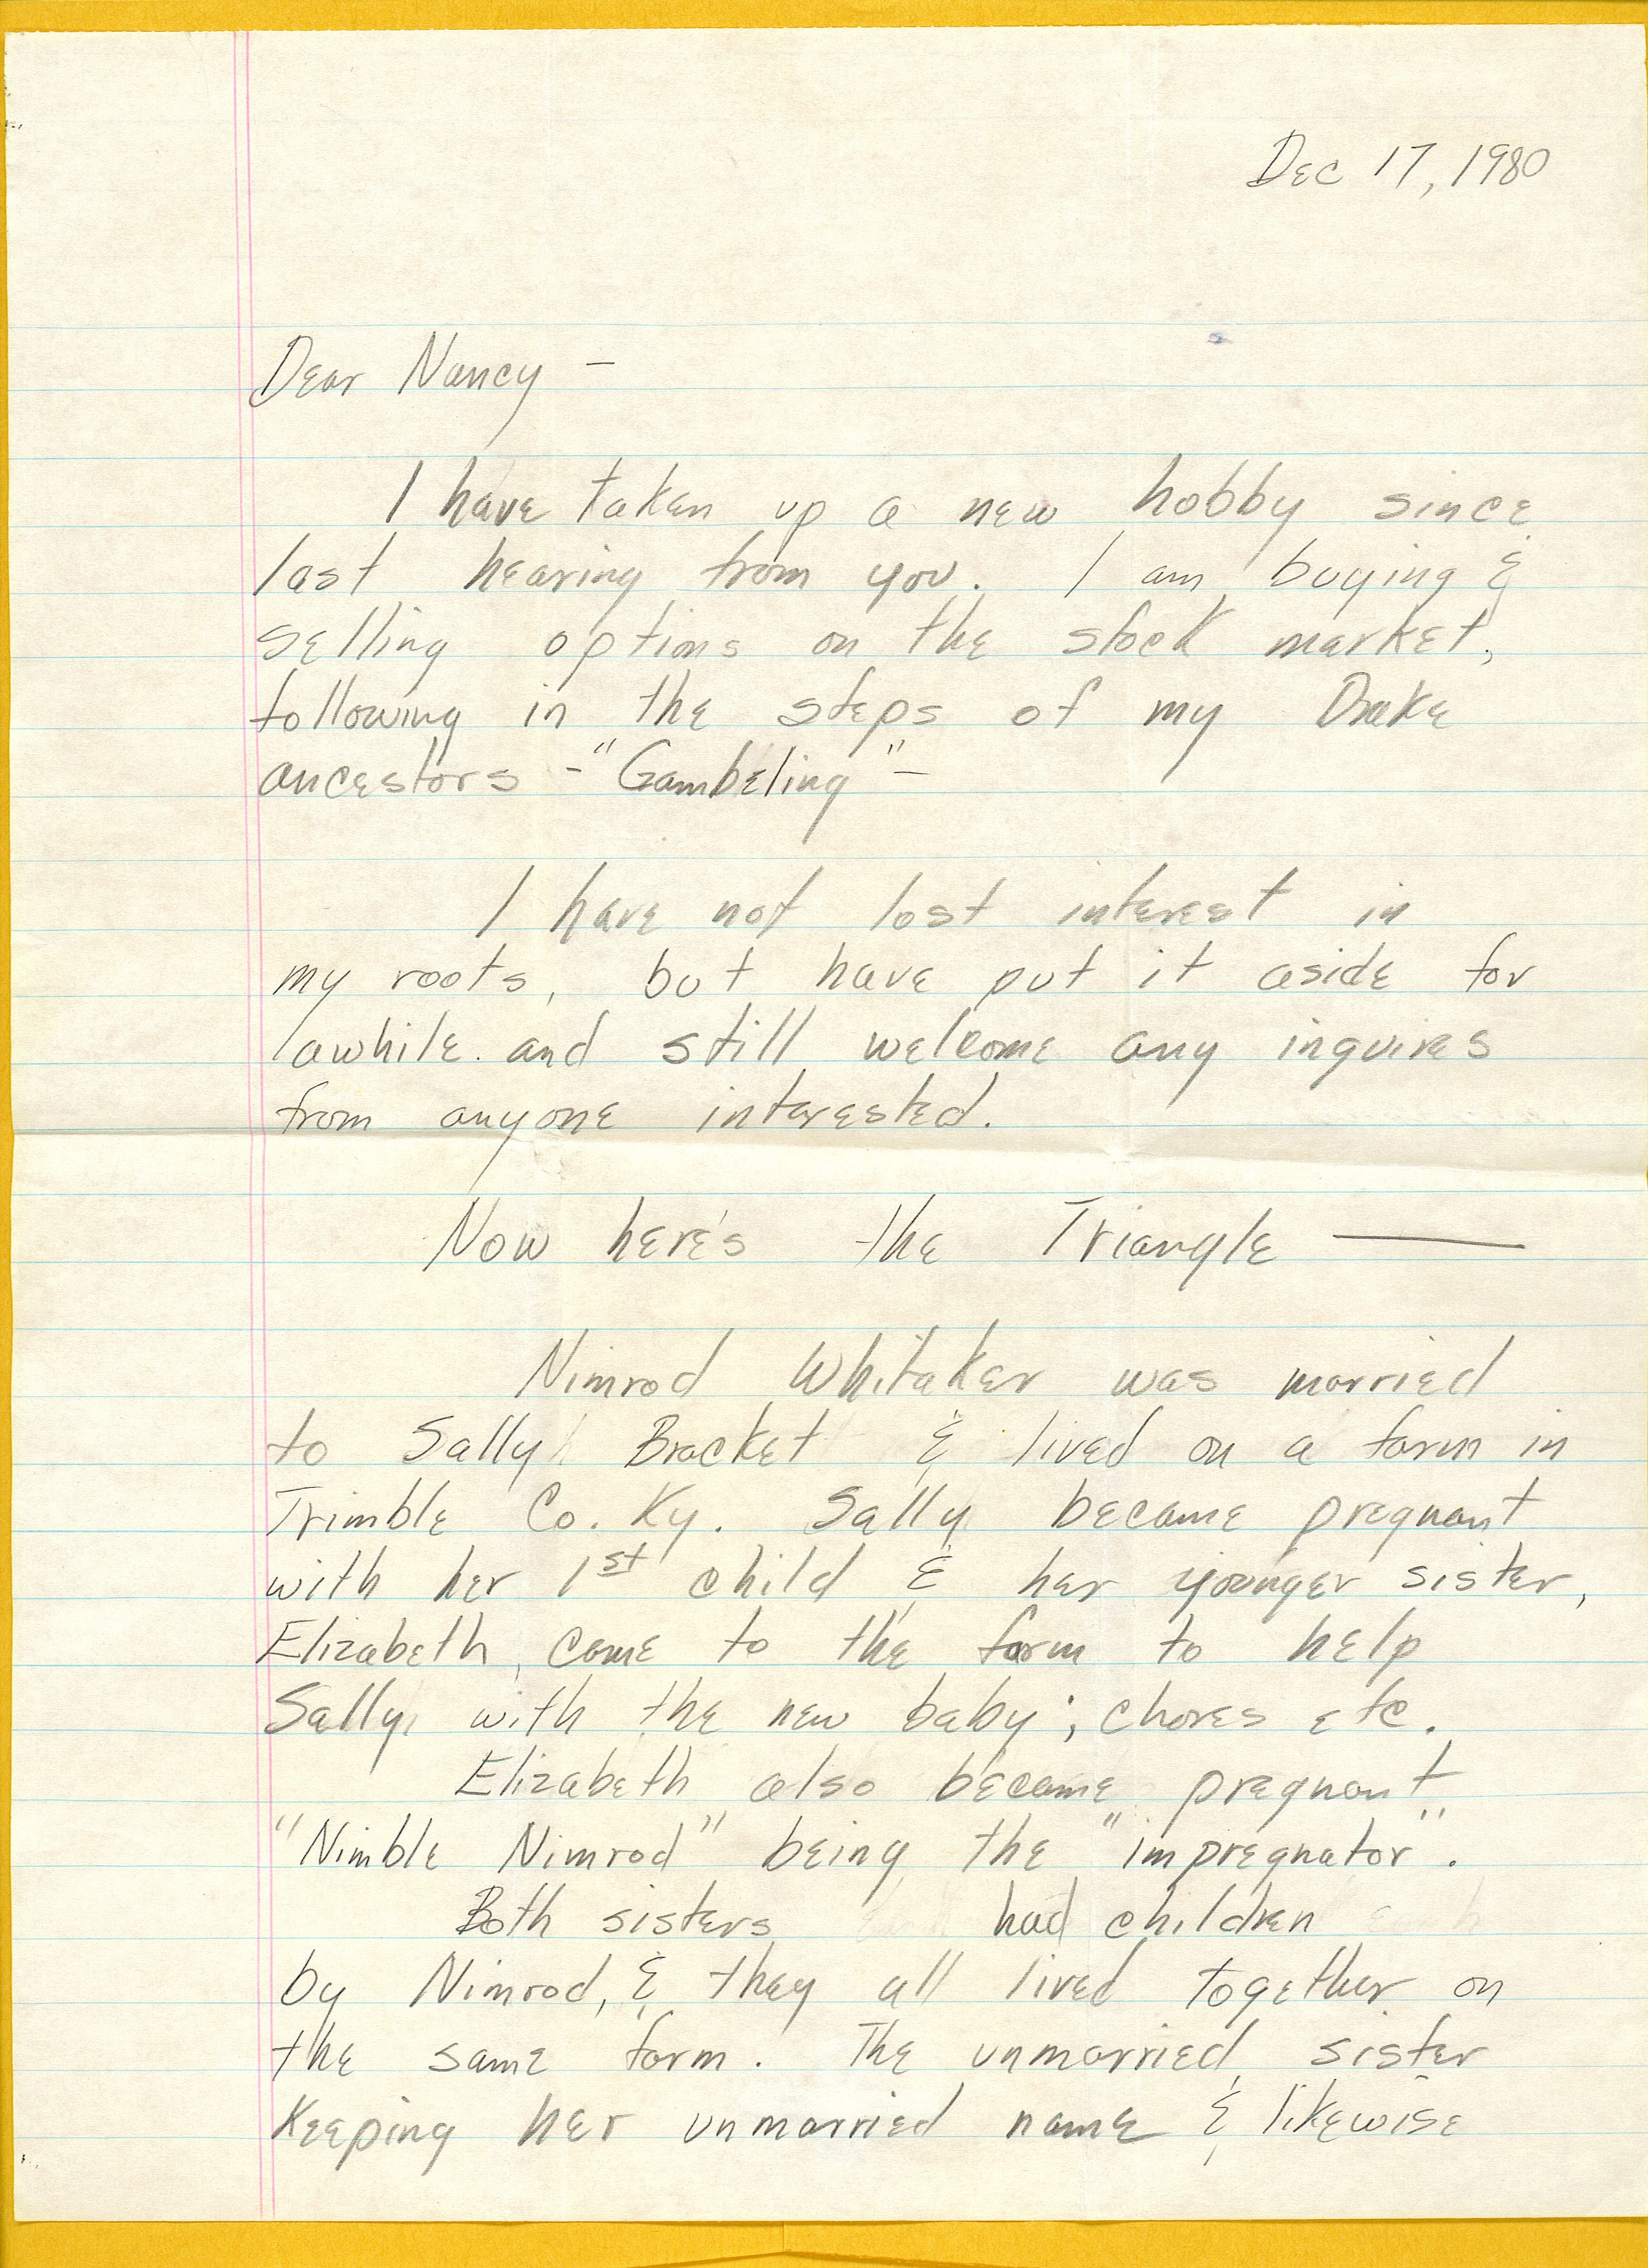 Dec 17, 1980
Dear Nancy –
I have taken up a new hobby since
last hearing from you. I am buying &
selling options on the stock market,
following in the steps of my Drake
ancestors – "Gambeling" –
I have not lost interest in
my roots, but have put it aside for
awhile. and still welcome any inquires
from anyone interested.
Now here's the Triangle ——
Nimrod Whitaker was married
to Sally Bracket & lived on a farm in
Trimble Co. Ky. Sally became pregnant
with her 1st child & her younger sister,
Elizabeth, came to the farm to help
Sally with the new baby; chores etc.
Elizabeth also became pregnant
"Nimble Nimrod" being the "impregnator".
Both sisters had children
by Nimrod, & they all lived together on
the same farm. The unmarried sister
Keeping her unmarried name & likewise